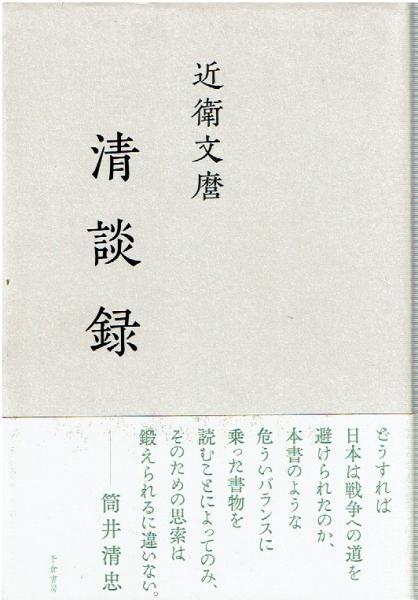 近衛文麿
清談録
どうすれば
日本は戦争への道を
避けられたのか、
本書のような
危ういバランスに
乗った書物を
読むことによってのみ、
そのための思索は
鍛えられるに違いない。
──筒井清忠
千倉書房